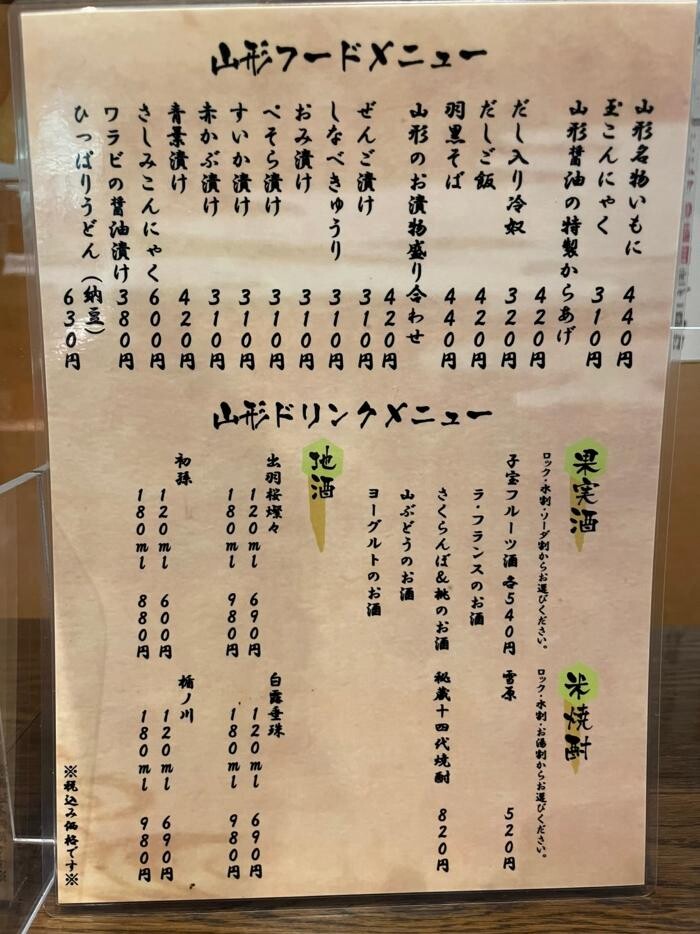 山形フードメニュー
山形名物いもに 440円
玉こんにゃく 310円
山形醤油の特製からあげ 420円
だし入り冷奴 320円
だしご飯 420円
羽黒そば 440円
山形のお漬物盛り合わせ 420円
ぜんご漬け 310円
しなべきゅうり 310円
おみ漬け 310円
ぺそら漬け 310円
すいか漬け 310円
赤かぶ漬け 310円
青菜漬け 420円
さしみこんにゃく 600円
ワラビの醤油漬け 380円
ひっぱりうどん(納豆) 630円
山形ドリンクメニュー
果実酒
ロック・水割・ソーダ割からお選びください。
子宝フルーツ酒 各540円
ラ・フランスのお酒
さくらんぼ&桃のお酒
山ぶどうのお酒
ヨーグルトのお酒
米焼酎
ロック・水割・お湯割からお選びください。
雪原 520円
秘蔵十四代焼酎 820円
地酒
出羽桜燦々
120ml 690円
180ml 980円
初孫
120ml 600円
180ml 880円
白露垂珠
120ml 690円
180ml 980円
楯ノ川
120ml 690円
180ml 980円
※税込み価格です※